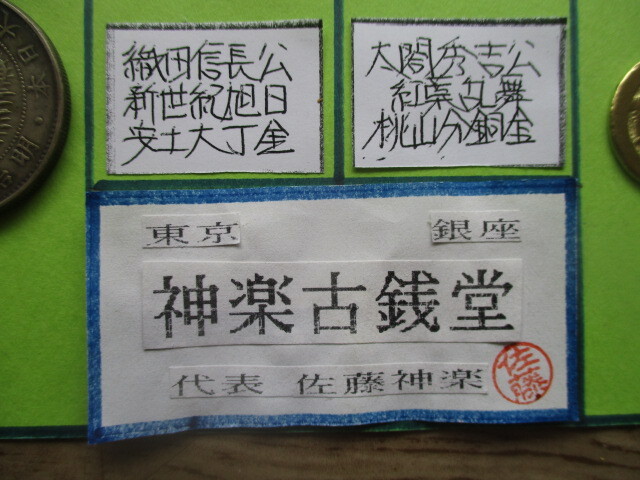 織田信長公
新世紀旭日
安土大丁金
太閤秀吉公
紅葉乱舞
桃山分銅金
東京 銀座
神楽古銭堂
代表 佐藤神楽
佐藤
大日本